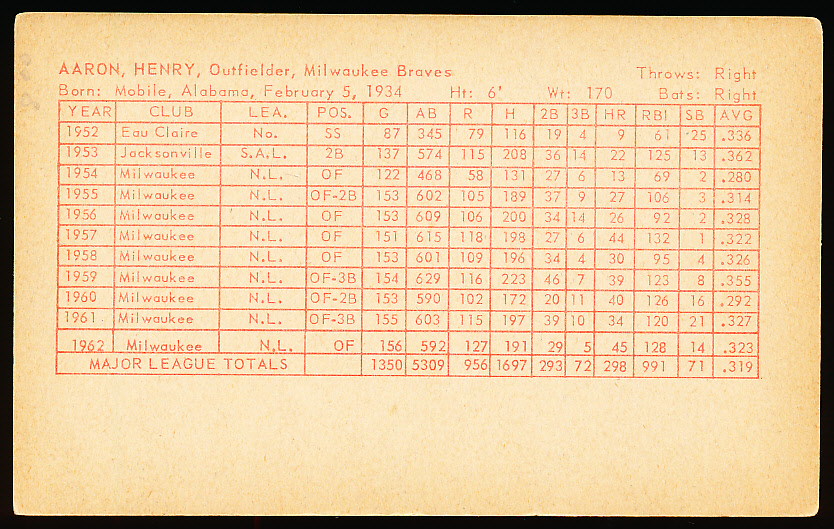 AARON, HENRY, Outfielder, Milwaukee Braves Throws: Right
Born: Mobile, Alabama, February 5, 1934 Ht: 6' Wt: 170 Bats: Right
YEAR CLUB LEA. POS. G AB R H 2B 3B HR RBI SB AVG
1952 Eau Claire No. SS 87 345 79 116 19 4 9 61 25 .336
1953 Jacksonville S.A.L. 2B 137 574 115 208 36 14 22 125 13 .362
1954 Milwaukee N.L. OF 122 468 58 131 27 6 13 69 2 .280
1955 Milwaukee N.L. OF-2B 153 602 105 189 37 9 27 106 3 .314
1956 Milwaukee N.L. OF 153 609 106 200 34 14 26 92 2 .328
1957 Milwaukee N.L. OF 151 615 118 198 27 6 44 132 1 .322
1958 Milwaukee N.L. OF 153 601 109 196 34 4 30 95 4 .326
1959 Milwaukee N.L. OF-3B 154 629 116 223 46 7 39 123 8 .355
1960 Milwaukee N.L. OF-2B 153 590 102 172 20 11 40 126 16 .292
1961 Milwaukee N.L. OF-3B 155 603 115 197 39 10 34 120 21 .327
1962 Milwaukee N.L. OF 156 592 127 191 29 5 45 128 14 .323
MAJOR LEAGUE TOTALS 1350 5309 956 1697 293 72 298 991 71 .319